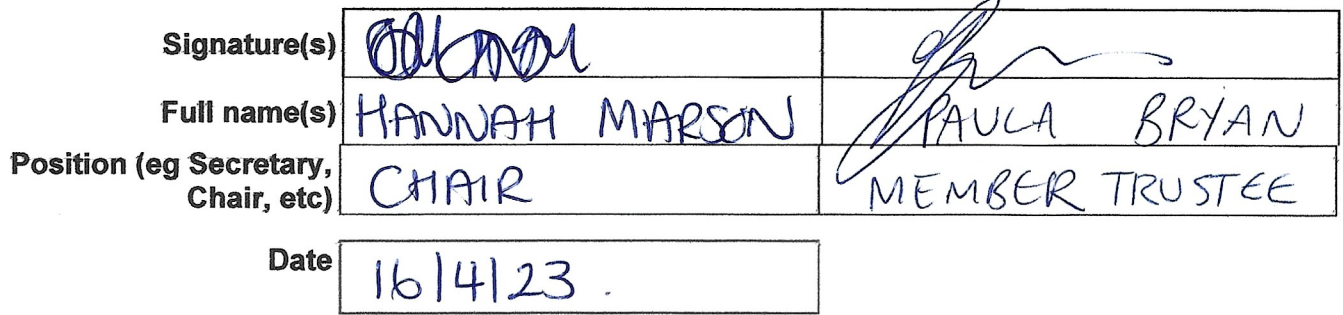 Signature(s)
Full name(s) HANNAH MARSON PAULA BRYAN
Position (eg Secretary,
Chair, etc) CHAIR MEMBER TRUSTEE
Date 16/4/23.